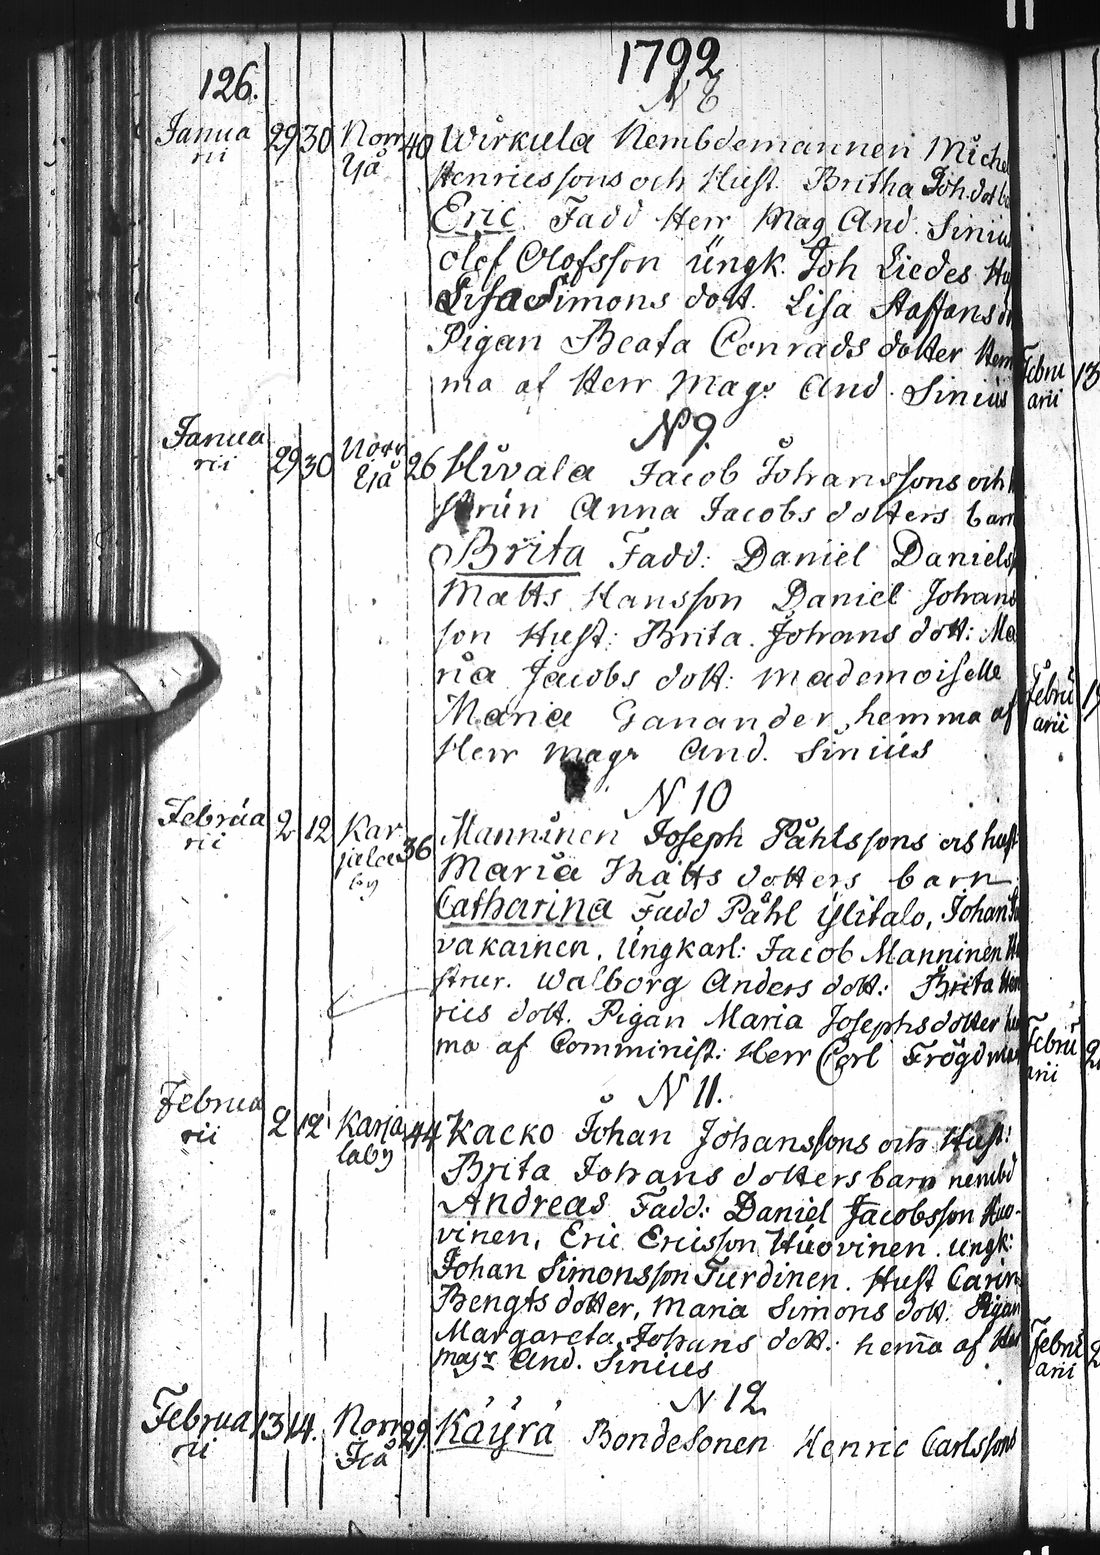 1792
126.
N 8
Janua 29 30 Norr 40 Wirkula Nembdemannen Miche
rii Ijå Henricssons och Hust. Britha Joh. dot
Eric Fadd Herr Mag And. Sinius
Olof Olofsson Ungk. Joh Liedes
Lisa Simons dott. Lisa Staffans
Pigan Beata Conrads dotter Hem
ma af Herr Magr And. Sinius
N 9.
Janua 29 30 Norr 26 Hivala Jacob Johanssons och
rii Ijå strun Anna Jacobs dotters barn
Brita Fadd: Daniel Daniels
Matts Hansson Daniel Johans
son Hust: Brita Johans dott: Ma
ria Jacobs dott: Mademoiselle
Maria Ganander, hemma af
Herr Magr And. Sinius
N 10
Februa 2 12 Kar 36 Manninen Joseph Påhlssons os hust
rii jala Maria Matts dotters barn
by Catharina Fadd Påhl Ylitalo, Johan
vakainen, Ungkarl: Jacob Manninen
strur. Walborg Anders dott: Brita Hen
rics dott. Pigan Maria Josephs dotter
ma af Comminist: Herr Carl Frögdman
N 11.
Februa 2 12 Karja 44 Kacko Johan Johanssons och Hust:
rii laby Brita Johans dotters barn nembd
Andreas Fadd: Daniel Jacobsson Huo-
vinen, Eric Ericsson Huovinen. Ungk:
Johan Simonsson Turdinen. Hust Carin
Bengts dotter, Maria Simons dott. Pigan
Margareta Johans dott: hem̄a af
Magr And. Sinius
N 12
Februa 13 14. Norr 29. Käyrä Bondesonen Henric Carlssons
rii Ijå
Febru 13
arii
Febru
arii
Febru
arii
Febru
arii